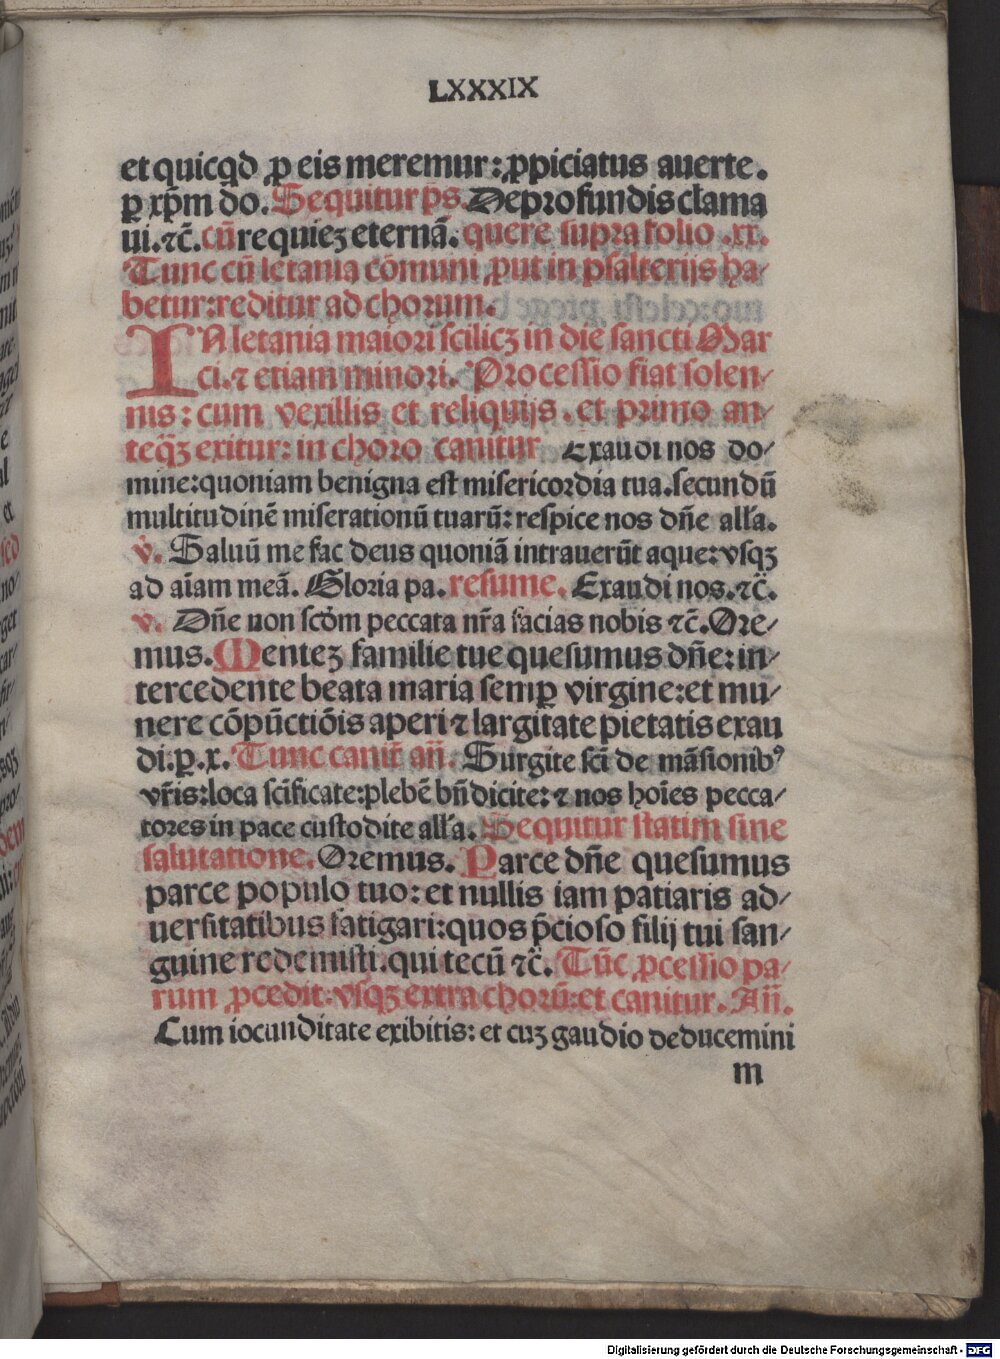 LXXXIX
et quicqd ꝓ eis meremur: ꝓpiciatus auerte.
ꝑ xp̄m dō. Sequitur p̄s. De profundis clama
ui. ⁊c̄. cū requiez eternā. quere supra folio .xx.
Tunc cū letania cōmuni ꝓut in psalterijs ha⸗
betur: reditur ad chorum.
IN letania maiori scilicꝫ in die sancti Mar
ci. ⁊ etiam minori. Processio fiat solen⸗
nis: cum vexillis et reliquijs. et primo an⸗
teq̄ꝫ exitur: in choro canitur Exaudi nos do⸗
mine: quoniam benigna est misericordia tua. secundū
multitudinē miserationū tuarū: respice nos dn̄e all'a.
v̄. Saluū me fac deus quoniā intrauerūt aque: vsqꝫ
ad aīam meā. Gloria pa. resume. Exaudi nos. ⁊c̄.
v. Dn̄e non scd̄m peccata nr̄a facias nobis ⁊c̄. Ore⸗
mus. Mentez familie tue quesumus dn̄e: in⸗
tercedente beata maria semꝑ virgine: et mu⸗
nere cōpūctiōis aperi ⁊ largitate pietatis exau
di: ꝑ. x. Tunc canit̄ an̄. Surgite sc̄i de māsionibꝰ
vr̄is: loca sc̄ificate: plebē bn̄dicite: ⁊ nos hoīes pecca⸗
tores in pace custodite all'a. Sequitur statim sine
salutatione. Oremus. Parce dn̄e quesumus
parce populo tuo: et nullis iam patiaris ad⸗
uersitatibus fatigari: quos p̄cioso filij tui san⸗
guine redemisti. qui tecū ⁊c̄. Tūc ꝓcessio pa⸗
rum ꝓcedit: vsqꝫ extra chorū: et canitur. An̄.
Cum iocunditate exibitis: et cuꝫ gaudio deducemini
m
Digitalisierung gefördert durch die Deutsche Forschungsgemeinschaft - DFG